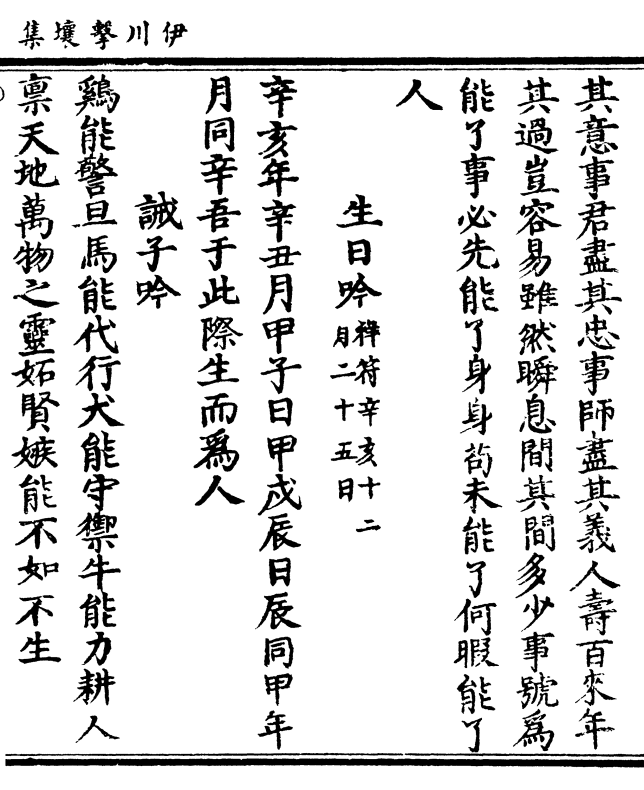 伊川擊壤集
其意事君盡其忠事師盡其義人壽百來年
其過豈容易雖然瞬息間其間多少事號爲
能了事必先能了身身茍未能了何暇能了
人
生日吟
祥符辛亥十二
月二十五日
辛亥年辛丑月甲子日甲戌辰日辰同甲年
月同辛吾于此際生而爲人
誡子吟
鷄能警旦馬能代行犬能守禦牛能力耕人
禀天地萬物之靈妬賢嫉能不如不生